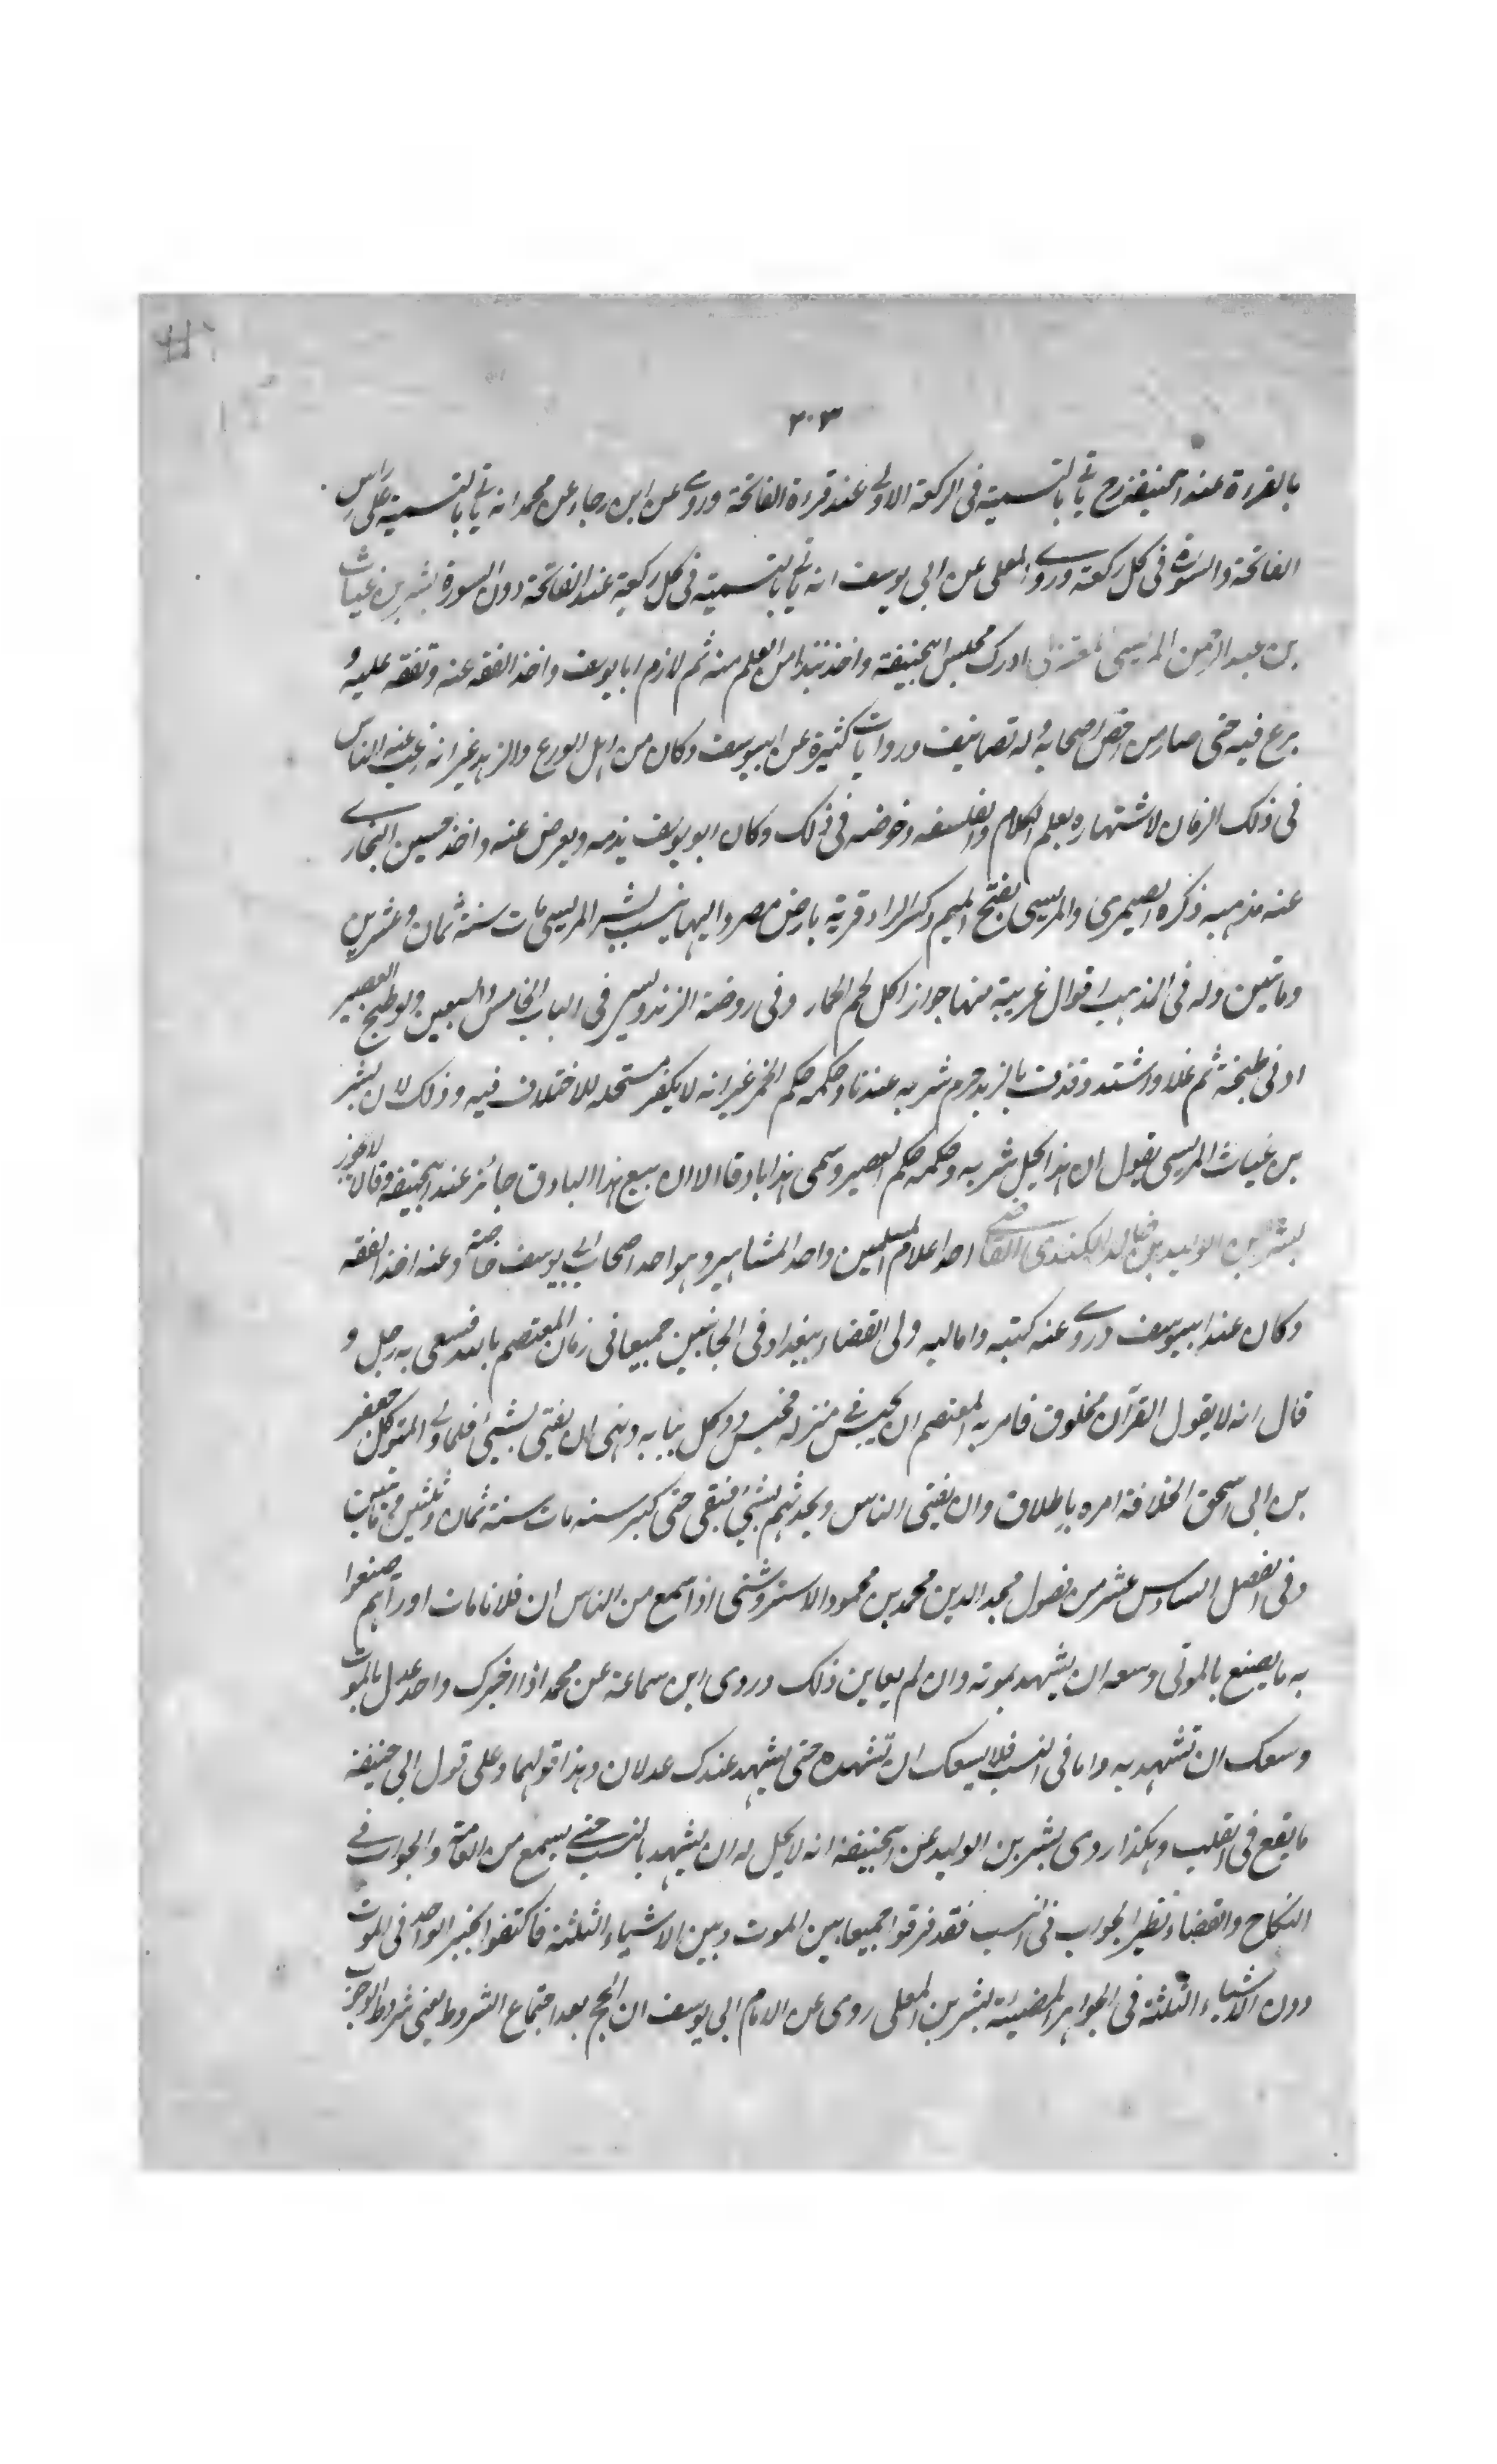 ٣٠٣
بالقراءة عند ابيحنيفة رح ياتي بالتسمية فى الركعة الاولى عند قراءة الفاتحة وروى عن ابن رجاء عن محمد انه ياتي بالتسمية على راس
الفاتحة والسورة فى كل ركعة وروى المعلى عن ابى يوسف انه ياتي بالتسمية فى كل ركعة عند الفاتحة دون السورة بشر بن غياث
بن عبد الرحمن المريسى المعتزلى ادرك مجلس ابيحنيفة واخذ نبذا من العلم منه ثم لازم ابا يوسف واخذ الفقه عنه وتفقه عليه و
برع فيه حتى صار من اخص اصحابه وله تصانيف وروايات كثيرة عن ابييوسف وكان من اهل الورع والزهد غير انه رغب عنه الناس
فى ذلك الزمان لاشتهاره بعلم الكلام والفلسفه وخوضه فى ذلك وكان ابو يوسف يذمه ويعرض عنه واخذ حسين النجارى
عنه مذهبه ذكره الصيمرى والمريسى بفتح الميم وكسر الراء قرية بارض مصر واليها ينسب بشر المريسى مات سنة ثمان وعشرين
وماتين وله فى المذهب اقوال غريبة منها جواز اكل لحم الحمار وفى روضة الزندويسى فى الباب الخامس والسبعين ولو طبخ العصير
ادنى طبخة ثم غلا واشتد وقذف بالزبد حرم شربه عندنا وحكمه حكم الخمر غير انه لا يكفر مستحله للاختلاف فيه وذلك لان بشر
بن غياث المريسى يقول ان هذا يحل شربه وحكمه حكم العصير وسمى هذا باذقا الا ان بيع هذا الباذق جائز عند ابيحنيفة وقالا لا يجوز
بشر بن الوليد بن خالد الكندى القاضى احد اعلام المسلمين واحد المشاهير وهو احد اصحاب ابى يوسف خاصة وعنه اخذ الفقه
وكان عند ابييوسف وروى عنه كتبه واماليه ولى القضاء ببغداد فى الجانبين جميعا فى زمان المعتصم بالله فسعى به رجل و
قال انه لا يقول القرآن مخلوق فامر به المعتصم ان يحبس فى منزله فحبس ووكل ببابه ونهى ان يفتى بشيئ فلما ولى المتوكل جعفر
بن ابى اسحق الخلافة امره باطلاق وان يفتى الناس ويحدثهم بشيئ فبقى حتى كبر سنه مات سنة ثمان وثلثين وماتين
وفى الفصل السادس عشر من فصول مجد الدين محمد بن محمود الاستروشنى اذا سمع من الناس ان فلانا مات اورآهم صنعوا
به ما يصنع بالموتى وسعه ان يشهد بموته وان لم يعاين ذلك وروى ابن سماعة عن محمد اذا اخبرك واحد عدل بالموت
وسعك ان تشهد به واما فى النسب فلا يسعك ان تشهده حتى يشهد عندك عدلان وهذا قولهما وعلى قول ابى حنيفة
ما يقع فى القلب وهكذا روى بشر بن الوليد عن ابيحنيفة انه لا يحل له ان يشهد بالنسب حتى يسمع من العامة والجواب فى
النكاح والقضاء نظير الجواب فى النسب فقد فرقوا جميعا بين الموت وبين الاشياء الثلثة فاكتفوا بخبر الواحد فى الموت
دون الاشياء الثلثة فى الجواهر المضيئة بشر بن المعلى روى عن الامام ابى يوسف ان الحج بعد اجتماع الشروط يعنى شروط الوجوب